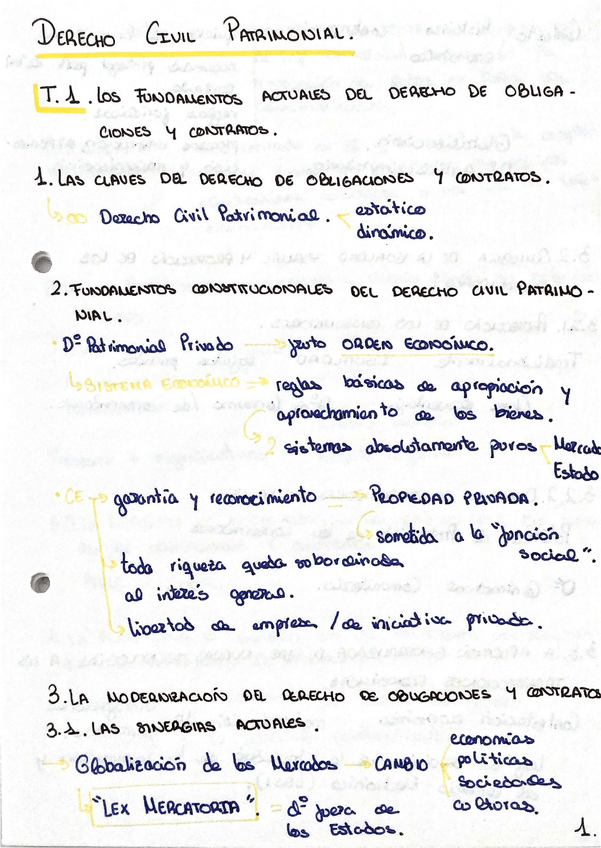 DERECHO CIVIL PATRIMONIAL.
T.1. LOS FUNDAMENTOS ACTUALES DEL DERECHO DE OBLIGA-
CIONES Y CONTRATOS.
1. LAS CLAVES DEL DERECHO DE OBLIGACIONES Y CONTRATOS.
Derecho Civil Patrimonial. estático
dinámico.
2. FUNDAMENTOS CONSTITUCIONALES DEL DERECHO CIVIL PATRIMO-
NIAL.
· Dº Patrimonial Privado → fruto ORDEN ECONÓMICO.
↳ SISTEMA ECONÓMICO = reglas básicas de apropiación y
aprovechamiento de los bienes.
2 sistemas absolutamente puros Mercado
Estado
· CE → garantía y reconocimiento → PROPIEDAD PRIVADA.
sometida a la "función
social".
→ toda riqueza queda subordinada
al interés general.
→ libertad de empresa / de iniciativa privada.
3. LA MODERNIZACIÓN DEL DERECHO DE OBLIGACIONES Y CONTRATOS
3.1. LAS SINERGIAS ACTUALES.
→ Globalización de los Mercados → CAMBIO economías
políticas
sociedades
culturas.
↳ "LEX MERCATORIA". = dº fuera de
los Estados.
1.